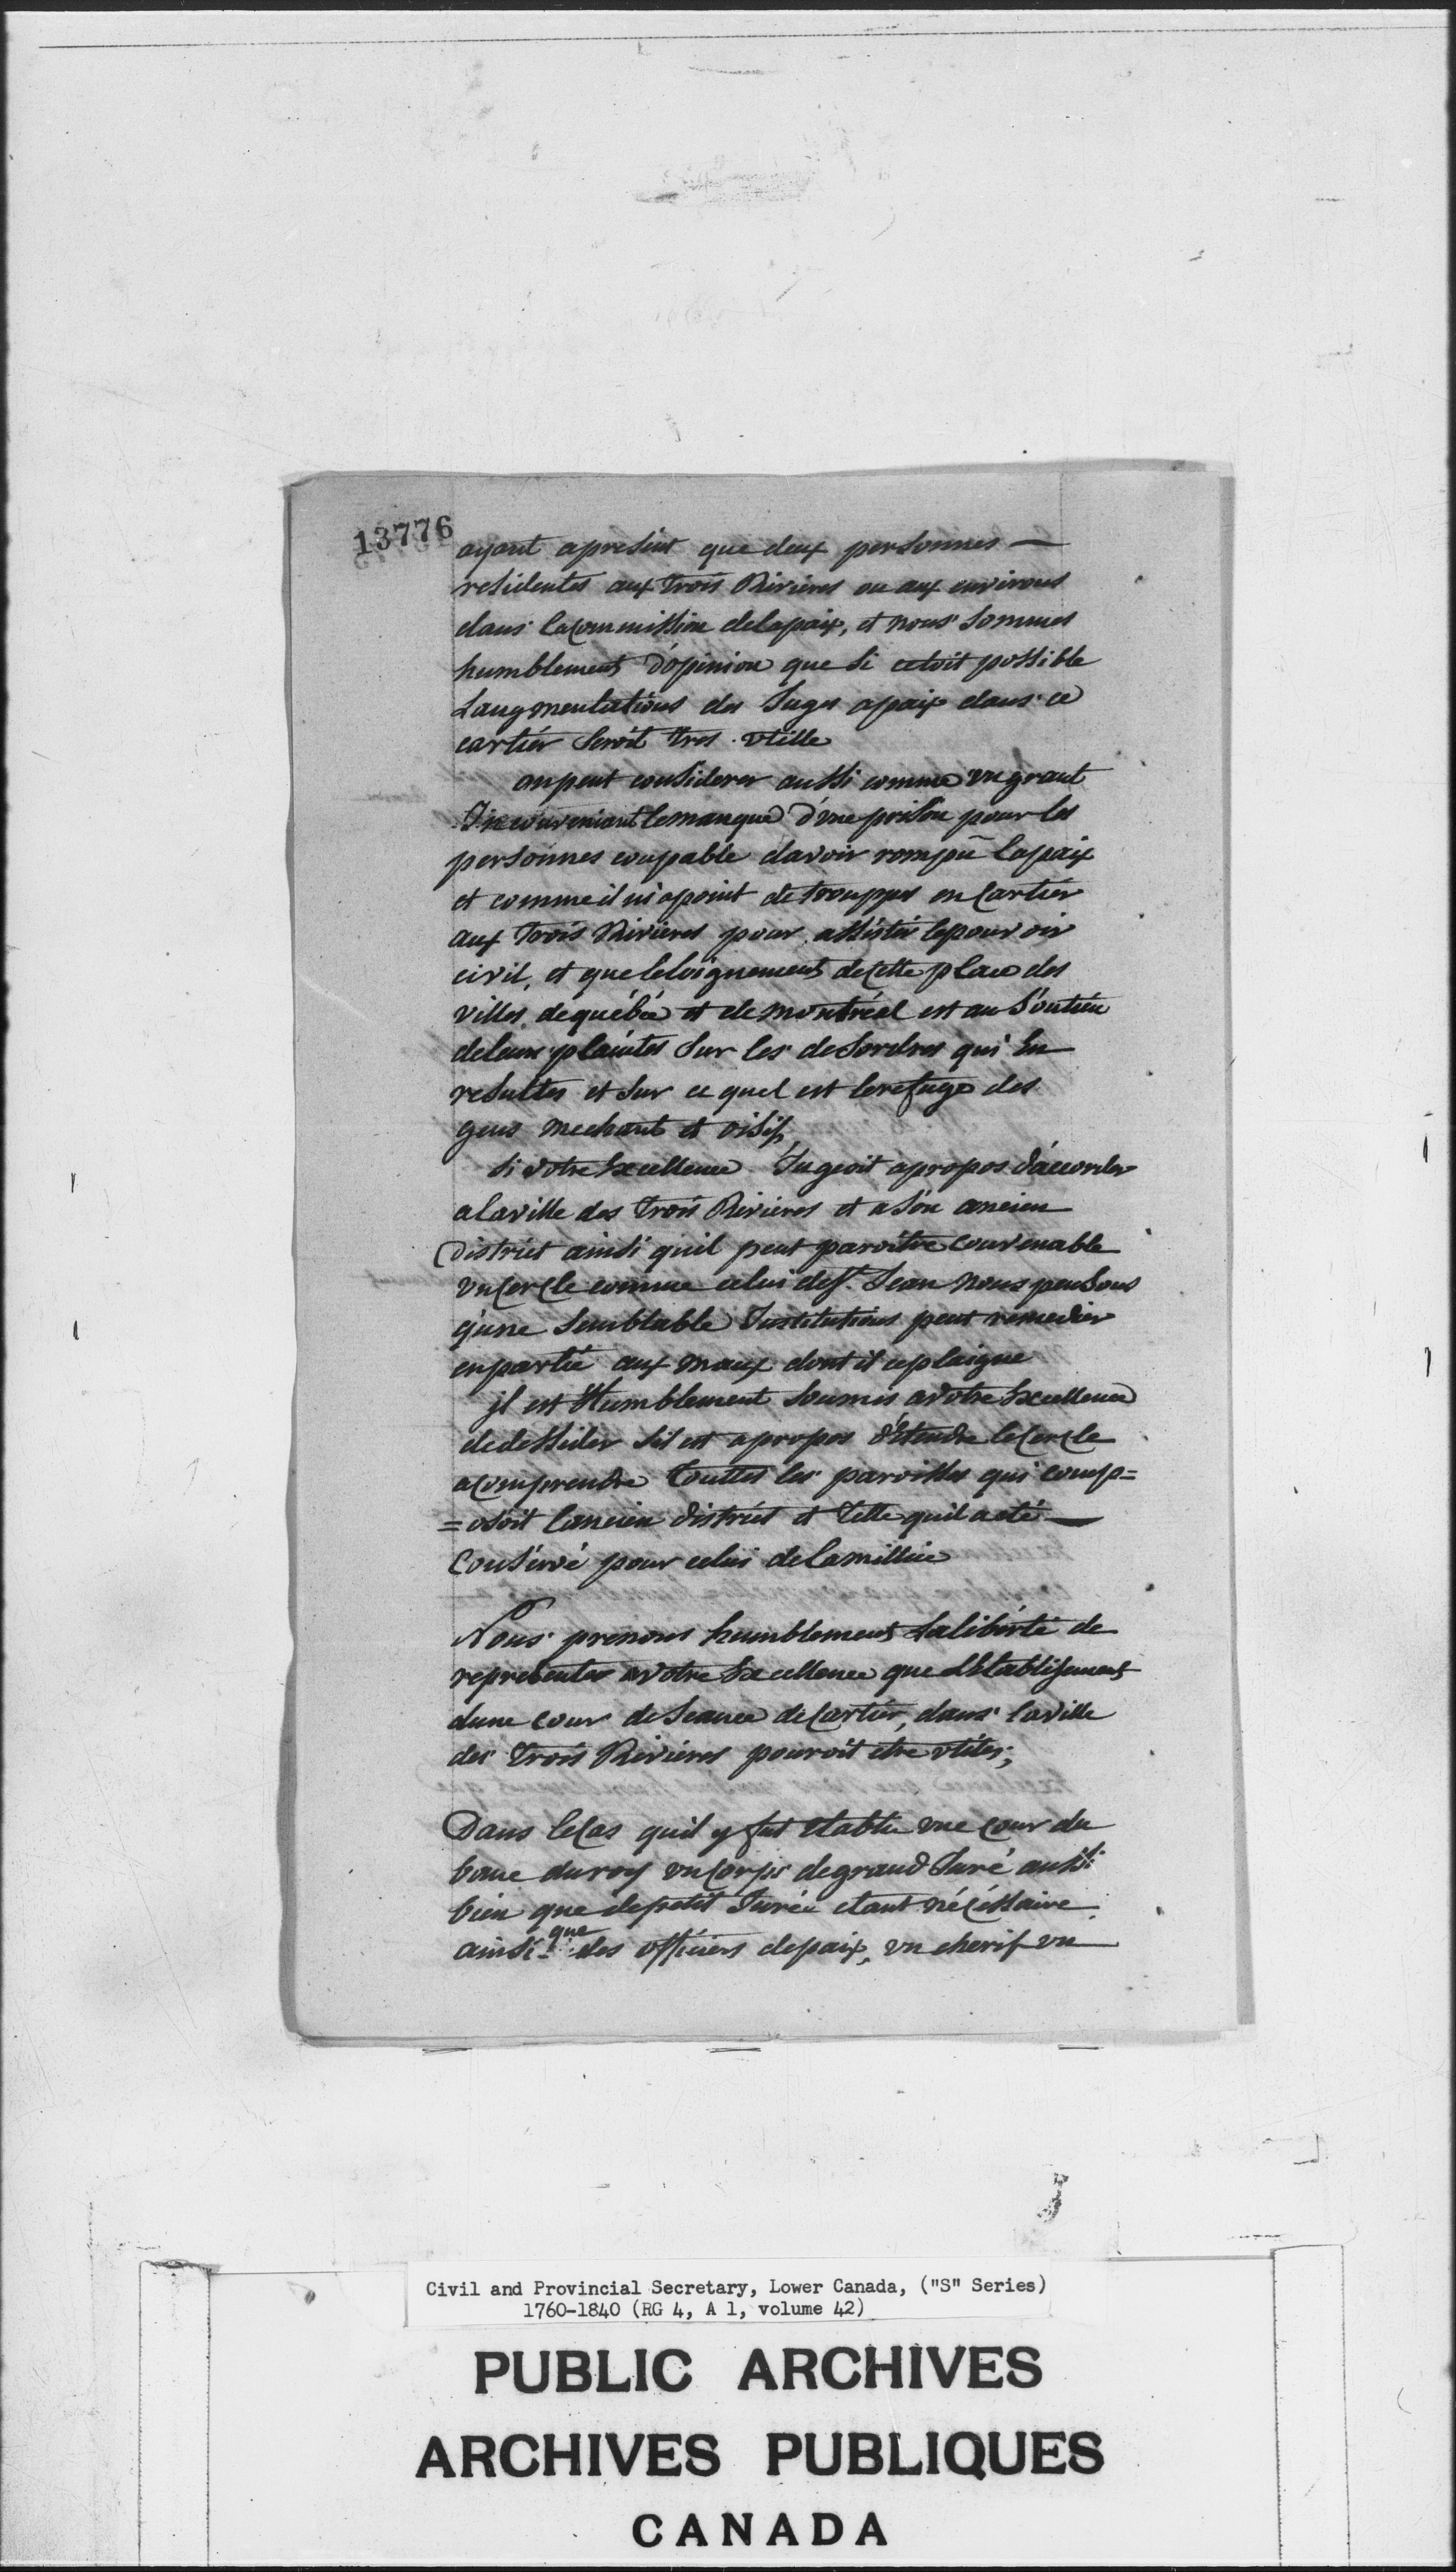 13776
ayant apresent que deux personnes —
residentes aux trois Rivieres ou aux environs
dans lacommission delapaix, et nous sommes
humblement d'opinion que si cetoit possible
Laugmentations des Juges apaix dans ce
cartiér seroit tres vtille
on peut considerer aussi comme un grant
Inconveniant lemanque d'une prison pour les
personnes coupable davoir rompû lapaix
et comme il ni apoint detrouppes en Cartiér
aux trois Rivieres pour assistér lepouvoir
civil, et queleloignement decette place des
villes, dequébéc et de montréal est au soutién
deleurs plaintes sur les desordres qui En
resultes et sur ce quel est lerefuge des
gens mechant et oisifs
si votre Excellence Jugeoit apropos d'accorder
alaville des trois Rivieres et a son ancien
District ainsi quil peut paroitre convenable
vn Cercle comme celui de St. Jean nous pensons
qune semblable Institutions peut remedier
enpartié aux maux dont il ceplaigne
jl est Humblement soumis avotre Excellence
dedessider sil est apropos d'Etendre leCercle
acomprendre touttes les paroisses qui comp=
=osoit lancien district et telle quil aeté —
Consérvé pour celui delamillice
Nous prenons humblement Laliberté de
representer avotre Excellence que LEtablisement
dune cour de seance deCartiér, dans laville
des trois Riviéres pouroit etre vtiles;
Dans leCas quil y fut Etablie vne Cour du
banc duroy vn Corps degrand Juré aussi
bien que depetit Jurée etant nécéssaire
ainsi que des officiers depaix, vn cherif vn
Civil and Provincial Secretary, Lower Canada, ("S" Series)
1760-1840 (RG 4, A 1, volume 42)
PUBLIC ARCHIVES
ARCHIVES PUBLIQUES
CANADA